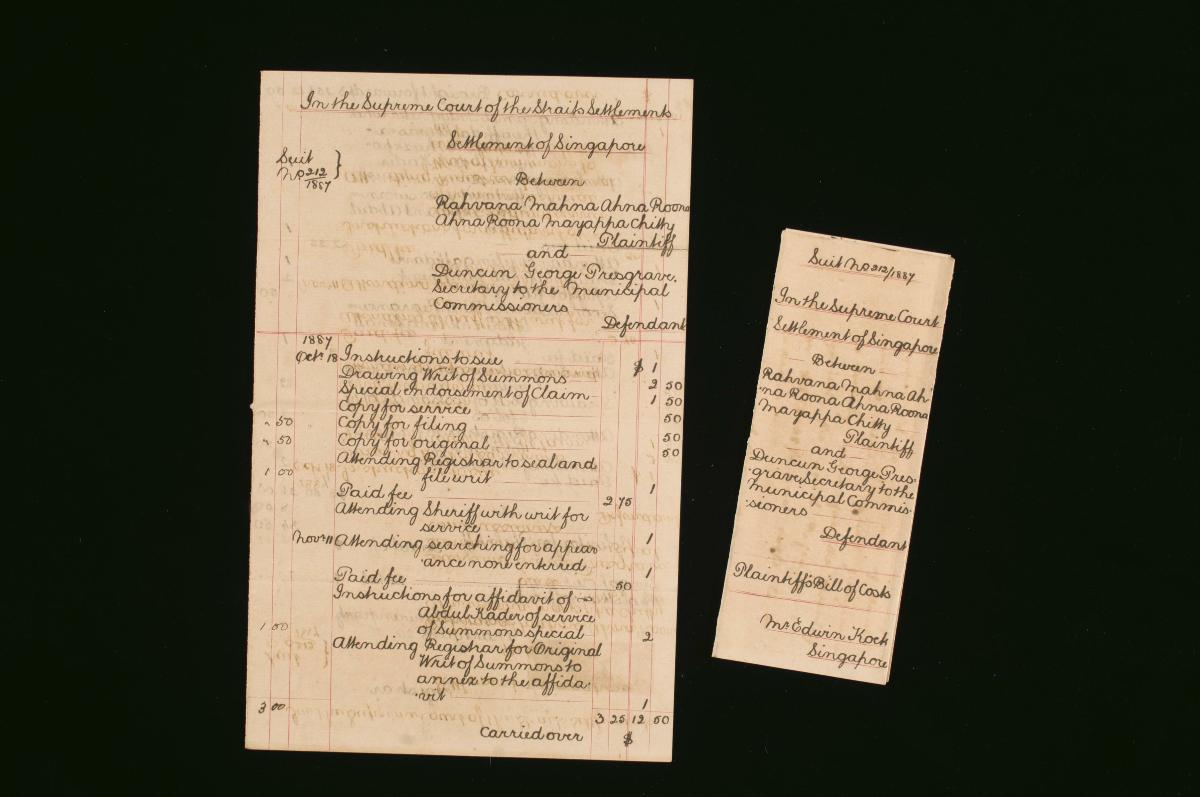 In the Supreme Court of the Straits Settlements
Settlement of Singapore
Suit
No 212/1887 }
Between
Rahvana Mahna Ahna Roona
Ahna Roona Mayappa Chitty
Plaintiff
and
Duncun George Presgrave,
Secretary to the Municipal
Commissioners
Defendant
1887
Octr 18 Instructions to sue $ 1
Drawing Writ of Summons 2 50
Special endorsement of Claim 1 50
Copy for service 50
" 50 Copy for filing 50
" 50 Copy for original 50
Attending Registrar to seal and
1 00 file writ 1
Paid fee 2 75
Attending Sheriff with writ for
service 1
Novr 11 Attending searching for appear
ance none enterred 1
Paid fee 50
Instructions for affidavit of
Abdul Kader of service
1 00 of Summons special 2
Attending Registrar for Original
Writ of Summons to
annex to the affida
vit 1
3 00 3 25 12 50
Carried over $
Suit No 212/1887
In the Supreme Court
Settlement of Singapore
Between
Rahvana Mahna Ah
na Roona Ahna Roona
Mayappa Chitty
Plaintiff
and
Duncun George Pres-
grave, Secretary to the
Municipal Commis-
sioners
Defendant
Plaintiff's Bill of Costs
Mr Edwin Koek
Singapore